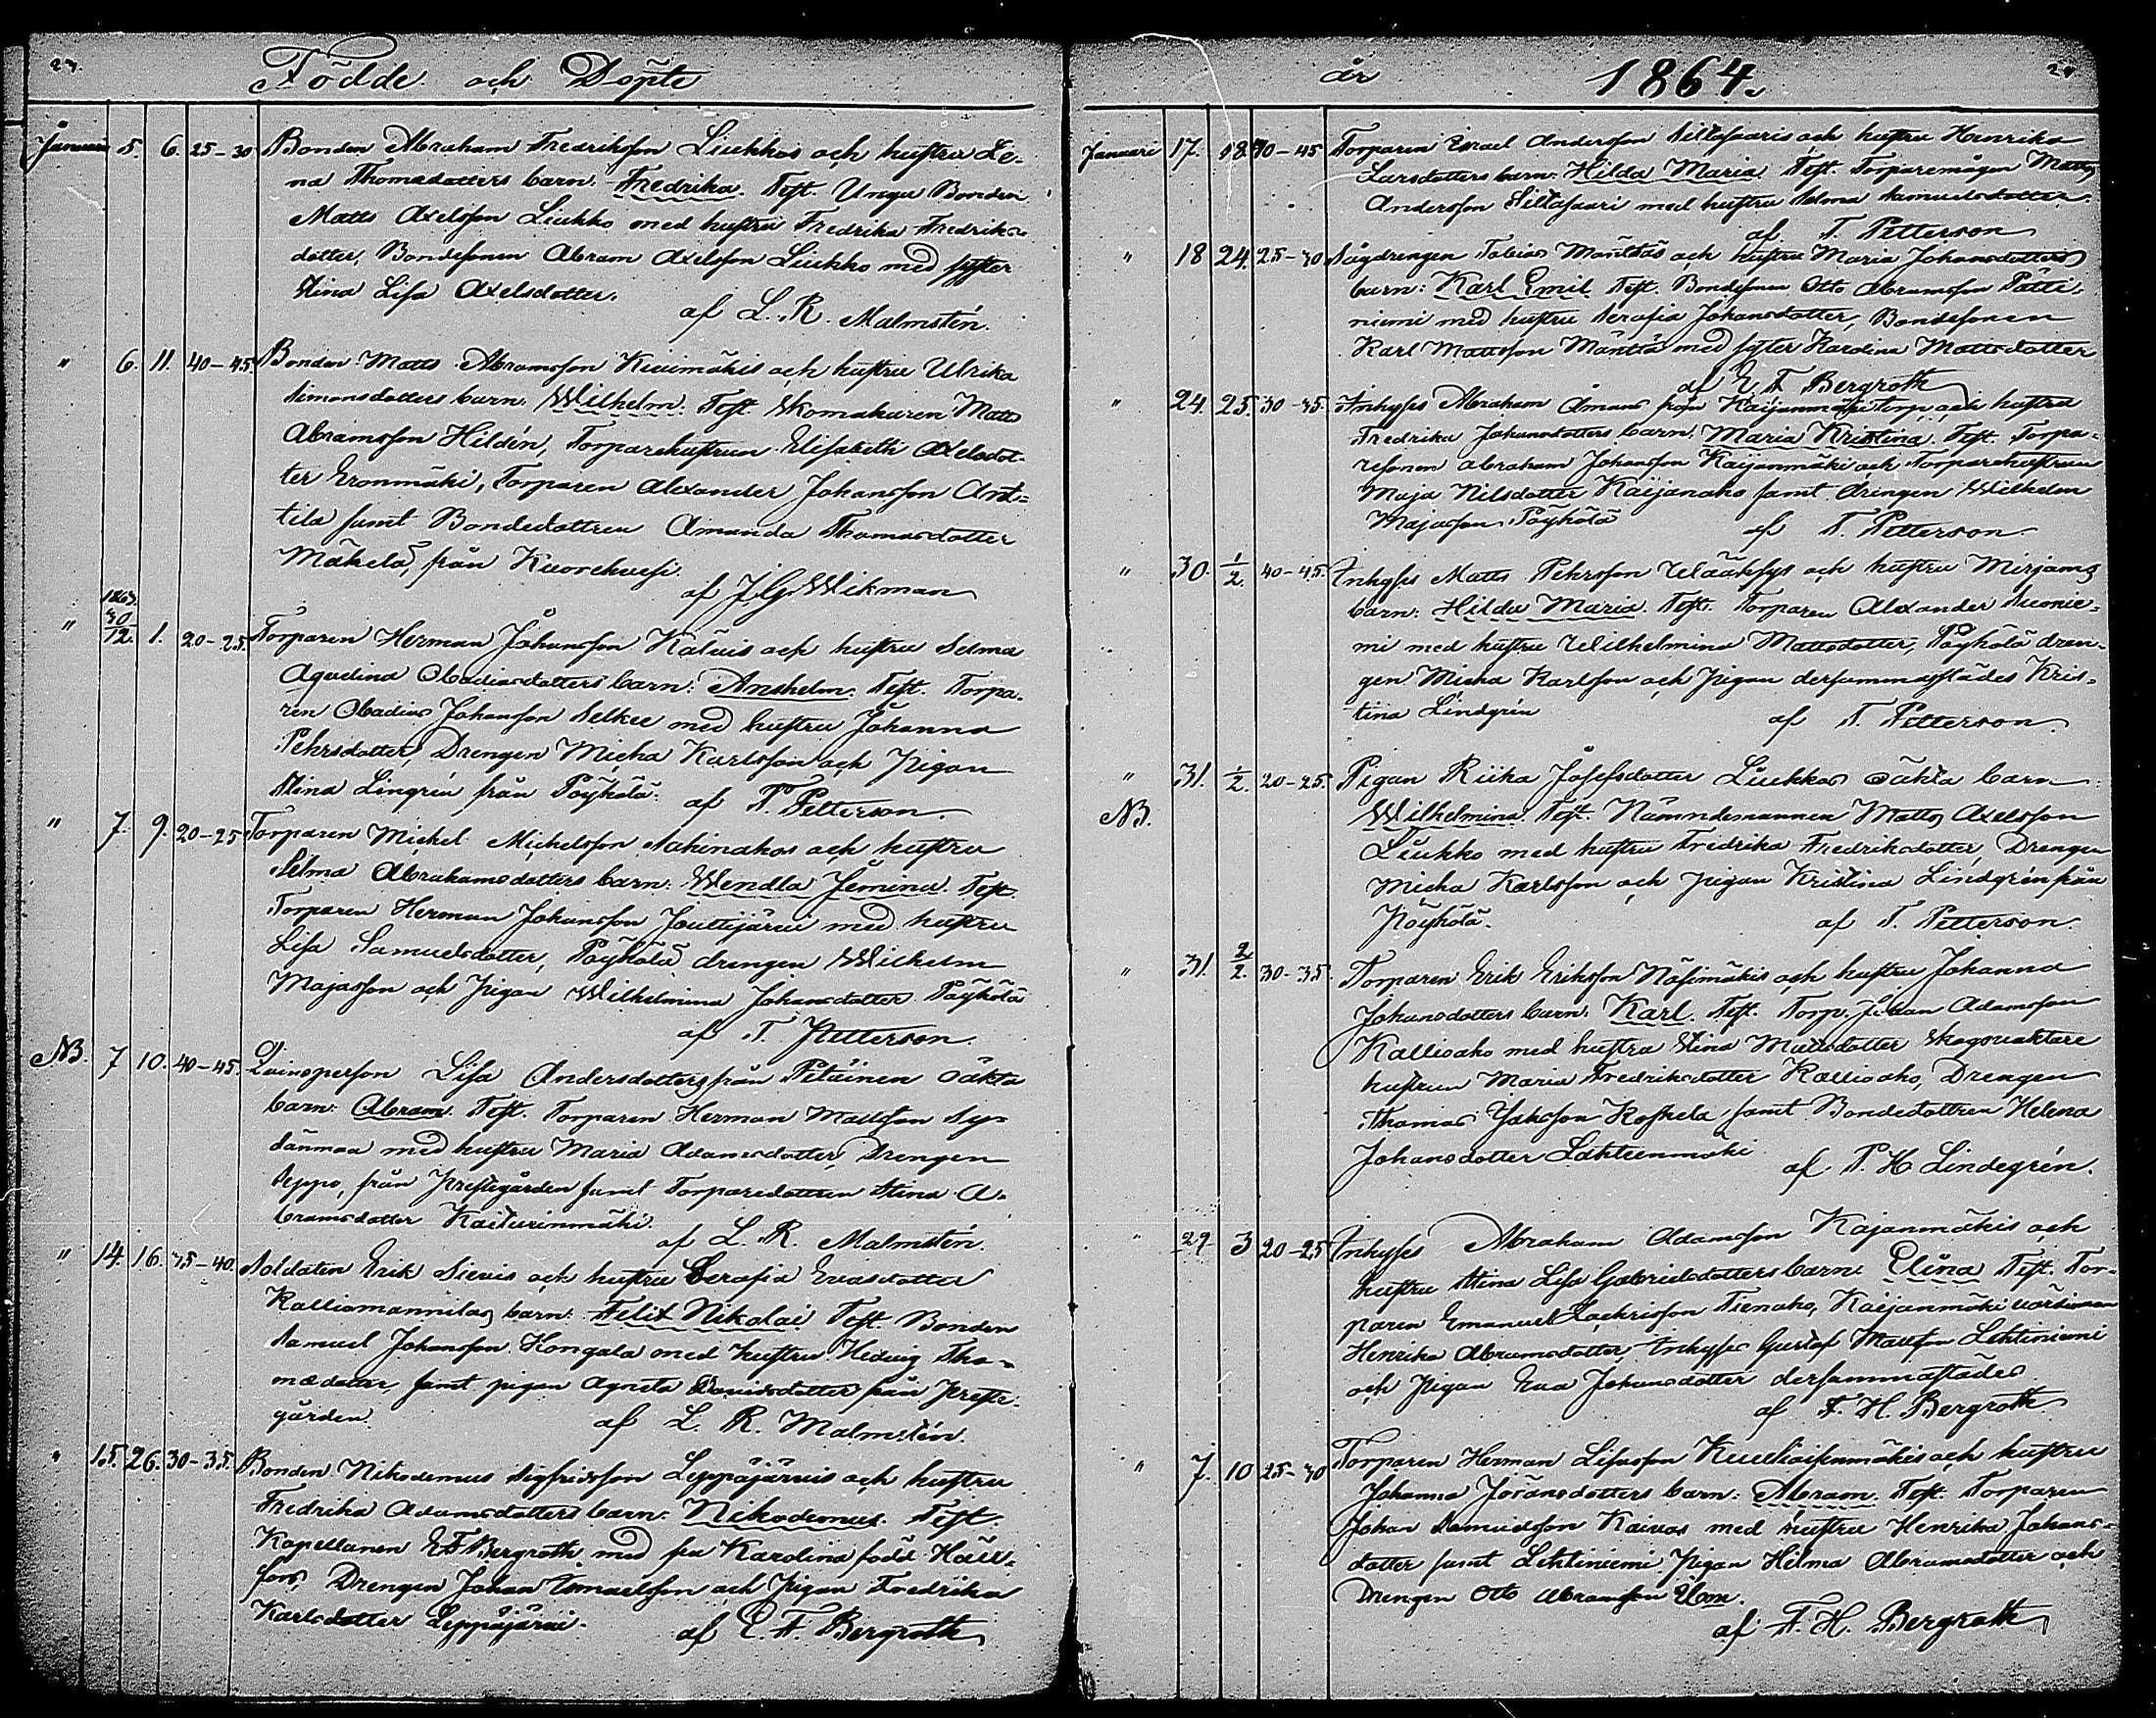 Födde och Döpte
Januari 5. 6. 25-30 Bonden Abraham Fredriksson Liukkos och hustru Le-
na Thomædotters barn: Fredrika. Test. Unga Bonden
Matts Axelsson Liukko med hustru Fredrika Fredriks-
dotter, Bondesonen Abram Axelsson Liukko med syster
Stina Lisa Axelsdotter.
af L. R. Malmstén.
" 6. 11. 40-45. Bonden Matts Abramsson Kivimäkis och hustru Ulrika
Simonsdotters barn: Wilhelm. Test. Skomakaren Matts
Abramsson Hildén, Torparehustrun Elisabeth Axelsdot-
ter Eronmäki, Torparen Alexander Johansson Ant-
tila samt Bondedottren Amanda Thomasdotter
Mäkelä, från Kuorehvesi.
af J. G. Wikman
" 1863. 30/12. 1. 20-25. Torparen Herman Johansson Kälvis och hustru Selma
Aqvelina Obadiasdotters barn: Anshelm. Test. Torpa-
ren Obadias Johansson Selkee med hustru Johanna
Pehrsdotter, Drengen Micha Karlsson och Pigan
Stina Lingrén från Pöyhölä.
af T. Petterson.
" 7. 9. 20-25 Torparen Michel Michelsson Ahinahos och hustru
Selma Abrahamsdotters barn: Wendla Jemina. Test.
Torparen Herman Johansson Jouttijärvi med hustru
Lisa Samuelsdotter, Pöyhölä drengen Wilhelm
Majasson och Pigan Wilhelmina Johansdotter Pöyhölä
af T. Petterson.
NB. 7 10. 40-45. Qvinsperson Lisa Andersdotters från Petäinen oäkta
barn: Abram. Test. Torparen Herman Mattsson Sy-
dänmaa med hustru Maria Adamsdotter, Drengen
Seppo, från Prestgården samt Torparedottren Stina A-
bramsdotter Kaiturinmäki.
af L. R. Malmstén.
" 14. 16. 35-40. Soldaten Erik Sievis och hustru Serafia Evasdotter
Kalliomannilas barn: Felix Nikolai Test. Bonden
Samuel Johansson Kongala med hustru Hedvig Tho-
mædotter, samt pigan Agneta Davidsdotter från Prest-
gården.
af L. R. Malmstén.
" 15. 26. 30-35. Bonden Nikodemus Sigfridsson Leppäjärvis och hustru
Fredrika Adamsdotters barn: Nikodemus. Test.
Kapellanen E F Bergroth med fru Karolina född Häll-
fors, Drengen Johan Ismaelsson och Pigan Fredrika
Karlsdotter Leppäjärvi.
af E. F. Bergroth
år 1864.
Januari 17. 18. 40-45 Torparen Israel Andersson Siltasaaris och hustru Henrika
Larsdotters barn: Hilda Maria Test. Torparemågen Matts
Andersson Siltasaari med hustru Selma Samuelsdotter.
af T. Petterson
" 18 24. 25-30 Sågdrengen Tobias Mänttäs och hustru Maria Johansdotters
barn: Karl Emil. Test. Bondesonen Otto Abramsson Pätti-
niemi med hustru Serafia Johansdotter, Bondesonen
Karl Mattsson Mänttä med syster Karolina Mattsdotter
af E. F. Bergroth
" 24. 25. 30-35. Inhyses Abraham Åmans från Kaijanmäki torp och hustru
Fredrika Johansdotters barn: Maria Kristina. Test. Torpa-
resonen Abraham Johansson Kaijanmäki och Torparehustrun
Maja Nilsdotter Kaijanaho samt drengen Wilhelm
Majasson Pöyhölä
af T. Petterson.
" 30. 1/2. 40-45. Inhyses Matts Pehrsson Wääksys och hustru Mirjams
barn: Hilda Maria. Test. Torparen Alexander Suonie-
mi med hustru Wilhelmina Mattsdotter, Pöyhölä dren-
gen Micha Karlsson och pigan dersammastädes Kris-
tina Lindgrén
af T. Petterson.
" 31. 1/2. 20-25. Pigan Riika Josefsdotter Liukkos oäkta barn:
NB. Wilhelmina. Test. Nämndemannen Matts Axelsson
Liukko med hustru Fredrika Fredriksdotter, Drengen
Micha Karlsson och pigan Kristina Lindgrén från
Pöyhölä.
af T. Petterson.
" 31. 2/2. 30-35. Torparen Erik Eriksson Näsimäkis och hustru Johanna
Johansdotters barn: Karl. Test. Torp. Johan Adamsson
Kallioaho med hustru Stina Mattsdotter Skogvaktare
hustrun Maria Fredriksdotter Kallioaho, Drengen
Thomas Isaksson Koskela samt Bondedottren Helena
Johansdotter Lahteenmäki
af P. H. Lindegrén.
" 29 3 20-25 Inhyses Abraham Adamsson Kajanmäkis och
hustru Stina Lisa Gabrielsdotters barn: Elina Test. Tor-
paren Emanuel Zachrisson Tienaho, Kaijanmäki värdinnan
Henrika Abramsdotter, Inhyses Gustaf Mattsson Lehtiniemi
och Pigan Eva Johansdotter dersammastädes
af F. H. Bergroth
" 7. 10 25-30 Torparen Herman Lisasson och hustru
Johanna Jöransdotters barn: Abram. Test. Torparen
Johan Samuelsson Kaivos med hustru Henrika Johans-
dotter samt Lehtiniemi Pigan Hilma Abramsdotter och
Drengen Otto Abramsson
af F. H. Bergroth